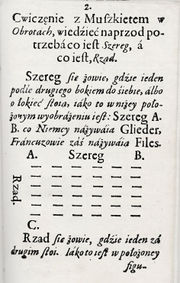 2.
Cwiczęnie z Muſzkietem w
Obrotach, wiedźieć naprzod po-
trzebá co ieſt Szereg, á
co ieſt, Rząd.
Szereg ſię zowie, gdźie ieden
podle drugiego bokiem do śiebie, álbo
o łokieć ſtoia, iáko to w niżey położo-
nym wyobráżeniu ieſt: Szereg A.
B. co Niemcy náżywáią Glieder,
Francuzowie záś náżywáią Files.
A. Szereg B.
Rząd.
C.
Rząd ſię żowie, gdźie ieden zá
drugim ſtoi. Iáko to ieſt w położoney
figu-